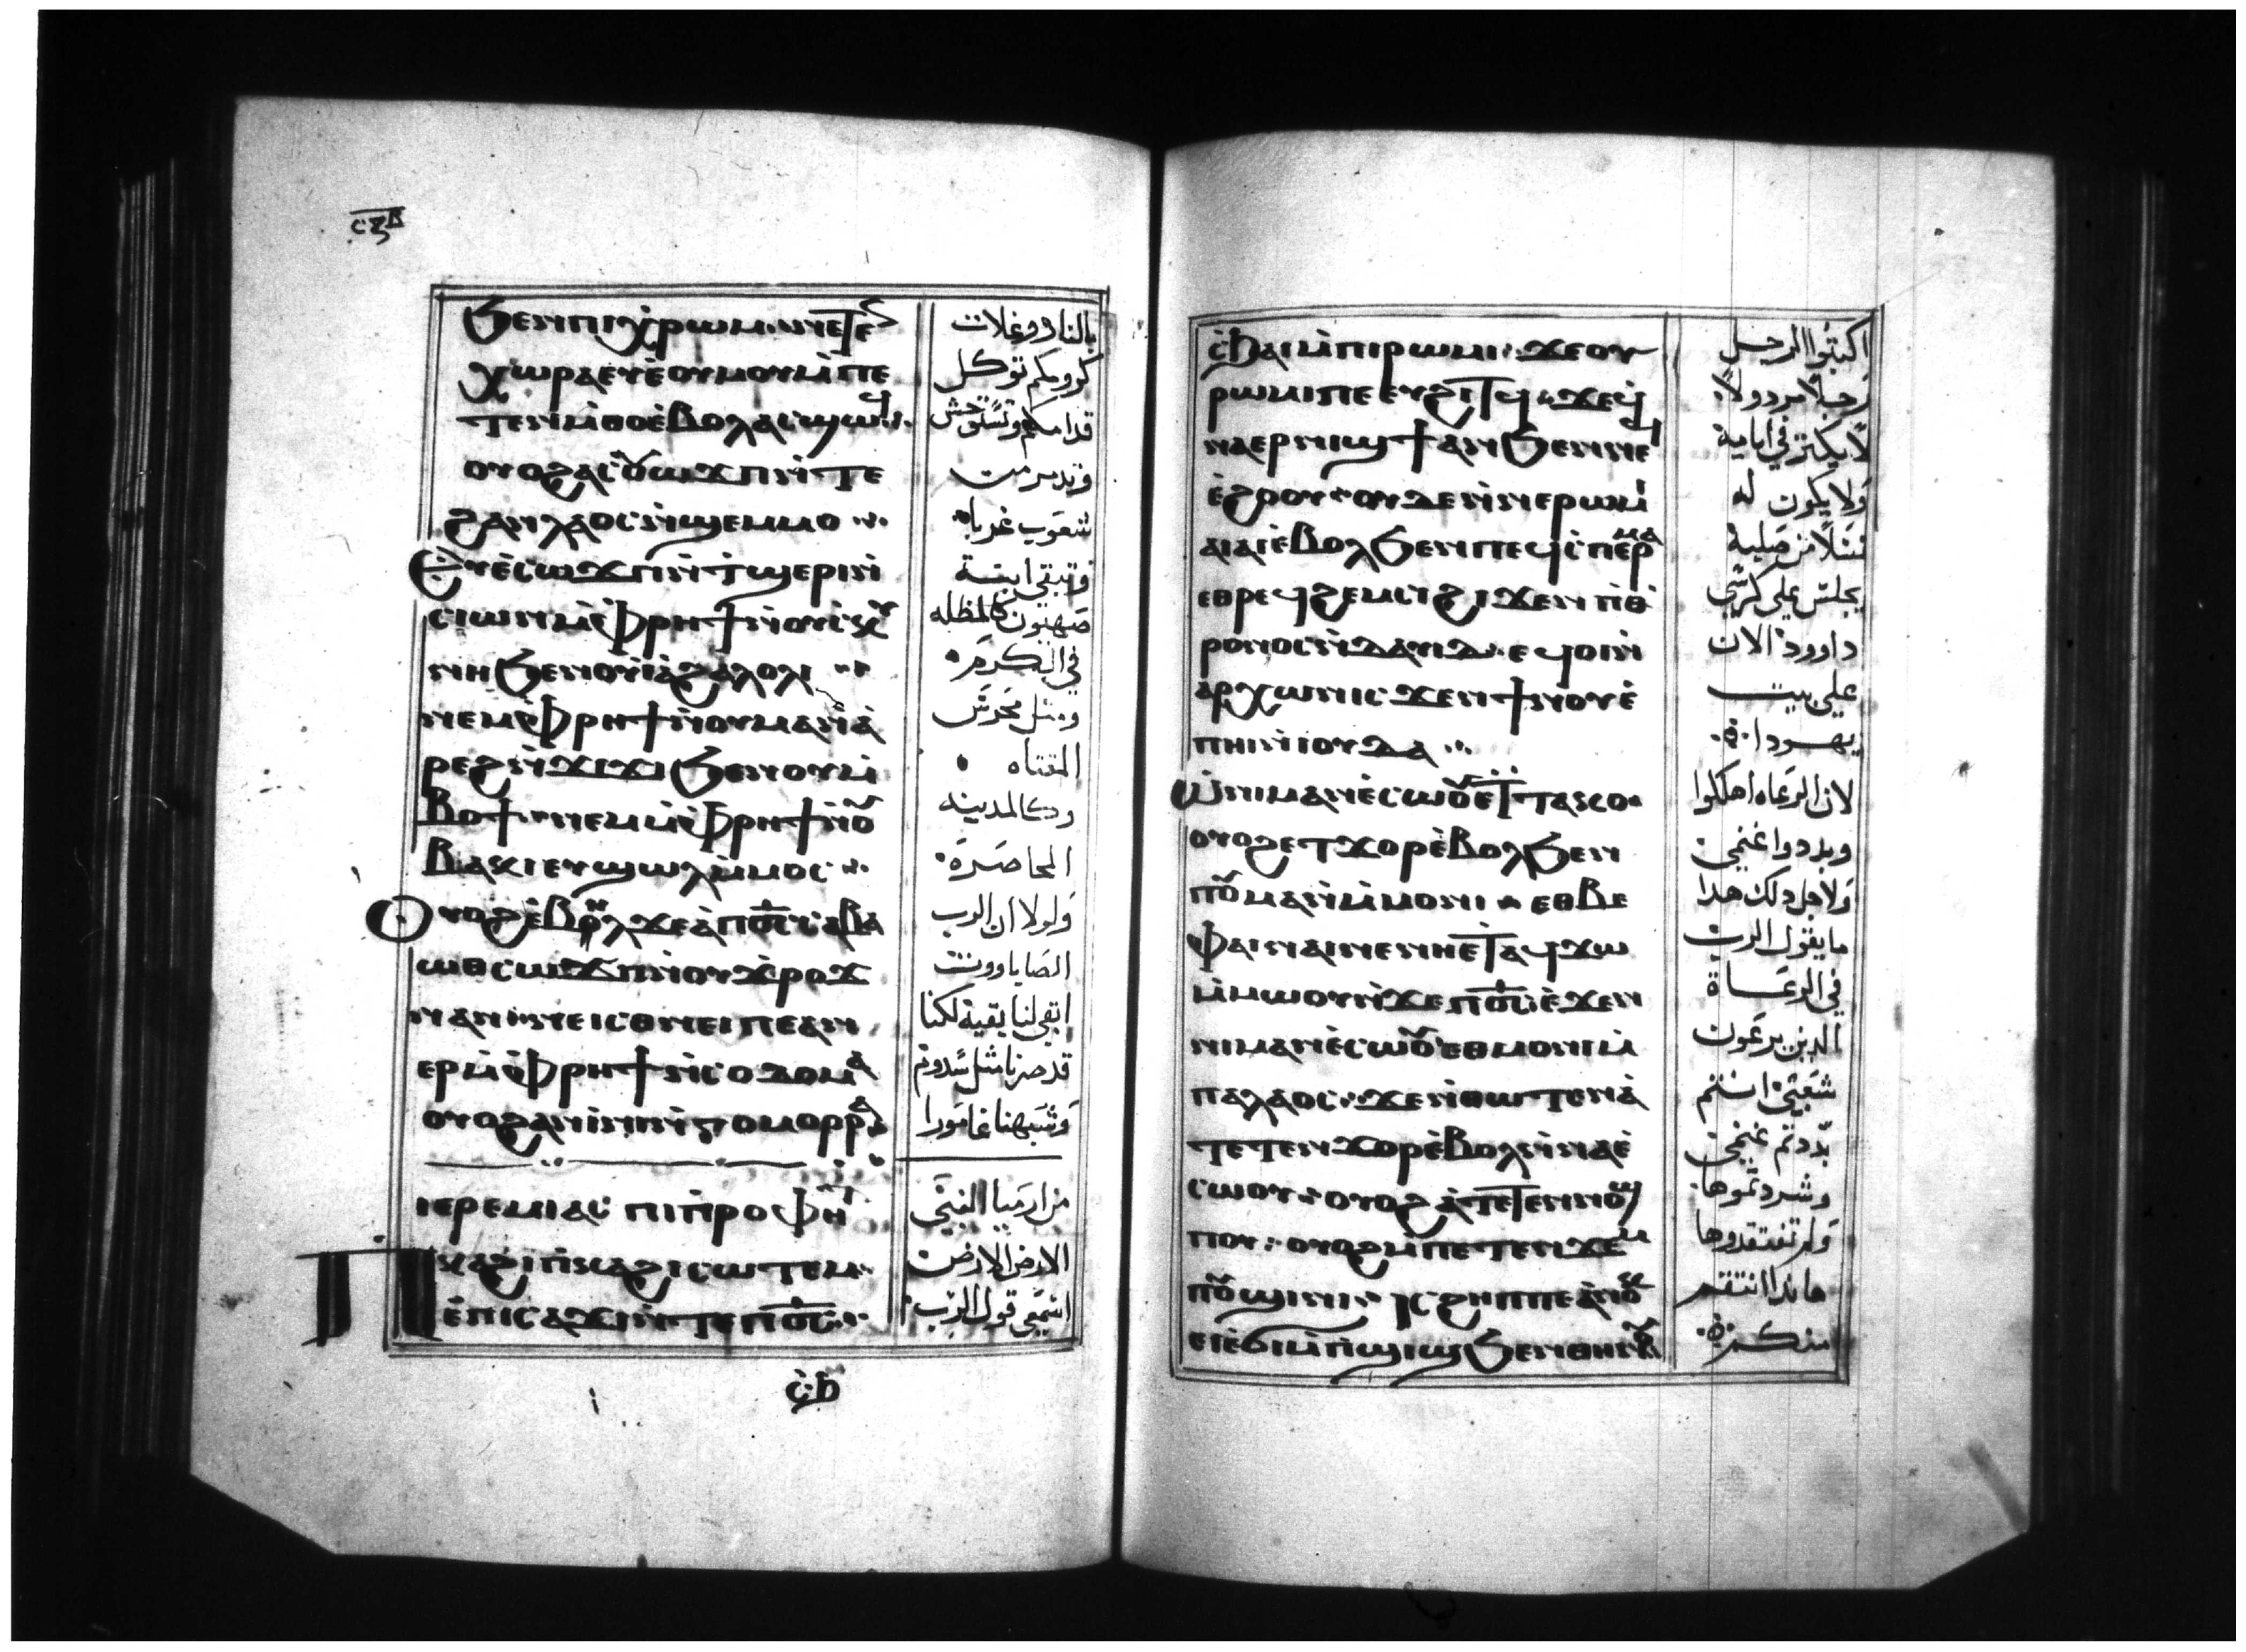 ⲥⲝⲃ
ϧⲉⲛⲡⲓⲭⲣⲱⲙ·ⲛⲓⲉⲧⲉ
ⲭⲱⲣⲁⲉⲩⲉⲟⲩⲙⲟⲩⲙ̀ⲡⲉ
ⲧⲉⲛⲙ̀ⲑⲟⲉ̀ⲃⲟⲗⲁⲥϣⲱϥ
ⲟⲩⲟϩⲁⲥⲟⲩⲱϫⲡⲛ̀ⲧⲉ
ϩⲁⲛⲗⲁⲟⲥⲛ̀ϣⲉⲙⲙⲟ
Ⲉⲩⲉ̀ⲥⲱϫⲡⲛ̀ϯϣⲉⲣⲓⲛ̀
ⲥⲓⲱⲛⲙ̀ⲫⲣⲏϯⲛ̀ⲟⲩⲥⲕⲩ
ⲛⲏϧⲉⲛⲟⲩⲓⲁϩⲁⲗⲟⲗⲓ
ⲛⲉⲙⲙ̀ⲫⲣⲏϯⲛ̀ⲟⲩⲙⲁⲛ̀ⲁ̀
ⲣⲉϩⲛ̀ϫⲓϫⲓϧⲉⲛⲟⲩⲙ̀
ⲃⲟϯ·ⲛⲉⲙⲙ̀ⲫⲣⲏϯⲛ̀ⲟⲩ
ⲃⲁⲕⲓⲉⲩϣⲱⲗⲙ̀ⲙⲟⲥ
Ⲟⲩⲟϩⲉ̀ⲃⲏⲗϫⲉⲁ̀ⲡⲟ̅ⲥ̅ⲥⲁⲃⲁ
ⲱⲑⲥⲱϫⲡⲛ̀ⲟⲩϫⲣⲟϫ
ⲛⲁⲛⲛⲉⲓⲥⲑⲛⲉⲓⲡⲉⲁⲛ
ⲉⲣⲙ̀ⲫⲣⲏϯⲛ̀ⲥⲟⲇⲟⲙⲁ
ⲟⲩⲟϩⲁⲛⲓ̀ⲛⲓⲛ̀ⲅⲟⲙⲟⲣⲣⲁ
ⲓⲉⲣⲉⲙⲓⲁⲥ ⲡⲓⲡⲣⲟⲫⲏⲧ
Ⲡⲕⲁϩⲓⲡⲕⲁϩⲓⲥⲱⲧⲉⲙ
ⲉ̀ⲡⲓⲥⲁϫⲓⲛ̀ⲧⲉⲡⲟ̅ⲥ̅
ⲥϧ
بالنار وغلات
كرومكم توكل
قدامكم وتستوحش
وتدمر من
شعوب غربا
وتبقى ابنة
صهيون كالمظله
في الكرم
ومثل محرس
المقتاه
وكالمدينه
المحاصرة
ولولا ان الرب
الصاباووت
ابقى لنا بقية لكنا
قد صرنا مثل سدوم
وشبهنا غامورا
من ارميا النبي
الارض الارض
اسمعي قول الرب
ⲥϧⲁⲓⲙ̀ⲡⲓⲣⲱⲙⲓ·ϫⲉⲟⲩ
ⲣⲱⲙⲓⲡⲉⲉⲩϩⲓⲧϥ·ϫⲉϥ
ⲛⲁⲉⲣⲛⲓϣϯⲁⲛϧⲉⲛⲛⲉϥ
ⲉ̀ϩⲟⲟⲩ·ⲟⲩⲇⲉⲛ̀ⲛⲉⲣⲱⲙⲓ
ⲁⲓⲁⲓⲉ̀ⲃⲟⲗϧⲉⲛⲡⲉϥⲥ̀ⲡⲉⲣⲙⲁ
ⲉⲑⲣⲉϥϩⲉⲙⲥⲓϩⲓϫⲉⲛⲡⲑ̀
ⲣⲟⲛⲟⲥⲛ̀ⲇⲁⲩⲓⲇ·ⲉϥⲟⲓⲛ̀
ⲁⲣⲭⲱⲛⲓⲥϫⲉⲛϯⲛⲟⲩⲉ̀
ⲡⲏⲓⲛ̀ⲓⲟⲩⲇⲁ
Ⲱⲛⲓⲙⲁⲛⲉ̀ⲥⲱⲟⲩⲉⲧⲧⲁⲕⲟ
ⲟⲩⲟϩⲉⲧϫⲟⲣⲉ̀ⲃⲟⲗϧⲉⲛ
ⲡⲟⲩⲙⲁⲛ̀ⲙ̀ⲙⲟⲛⲓ·ⲉⲑⲃⲉ
ⲫⲁⲓⲛⲁⲓⲛⲉⲛⲏⲉⲧⲁϥϫⲱ
ⲙ̀ⲙⲱⲟⲩⲛ̀ϫⲉⲡⲟ̅ⲥ̅ⲉ̀ϫⲉⲛ
ⲛⲓⲙⲁⲛⲉ̀ⲥⲱⲟⲩⲉⲑⲙⲟⲛⲓⲙ̀
ⲡⲁⲗⲁⲟⲥ·ϫⲉⲛ̀ⲑⲱⲧⲉⲛⲁ̀
ⲧⲉⲧⲉⲛϫⲟⲣⲉ̀ⲃⲟⲗⲛ̀ⲛⲁⲉ̀
ⲥⲱⲟⲩ·ⲟⲩⲟϩⲁ̀ⲧⲉⲧⲉⲛⲛⲟϣ
ⲡⲟⲩ·ⲟⲩⲟϩⲙ̀ⲡⲉⲧⲉⲛϫⲉⲙ
ⲡⲟⲩϣⲓⲛⲓ·ⲓⲥϩⲏⲡⲡⲉⲁⲛⲟⲕ
ⲉⲓⲉ̀ϭⲓⲙ̀ⲡϣⲓϣϧⲉⲛⲑⲏⲛⲟⲩ
اكتبوا الرجل
رجلا مردولا
لا يكثر في ايامه
ولا يكون له
نسلا من صلبه
يجلس على كرسي
داوود الان
على بيت
يهودا
لان الرعاه اهلكوا
وبددوا غنمي
ولاجل ذلك هذا
ما يقول الرب
في الرعاة
الذين يرعون
شعبي انتم
بددتم غنمي
وشردتموها
ولم تفتقدوها
هانذا انتقم
منكم